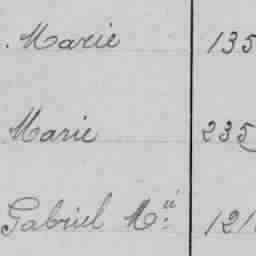 Marie 135
Marie 235
Gabriel M.ᵃ 121